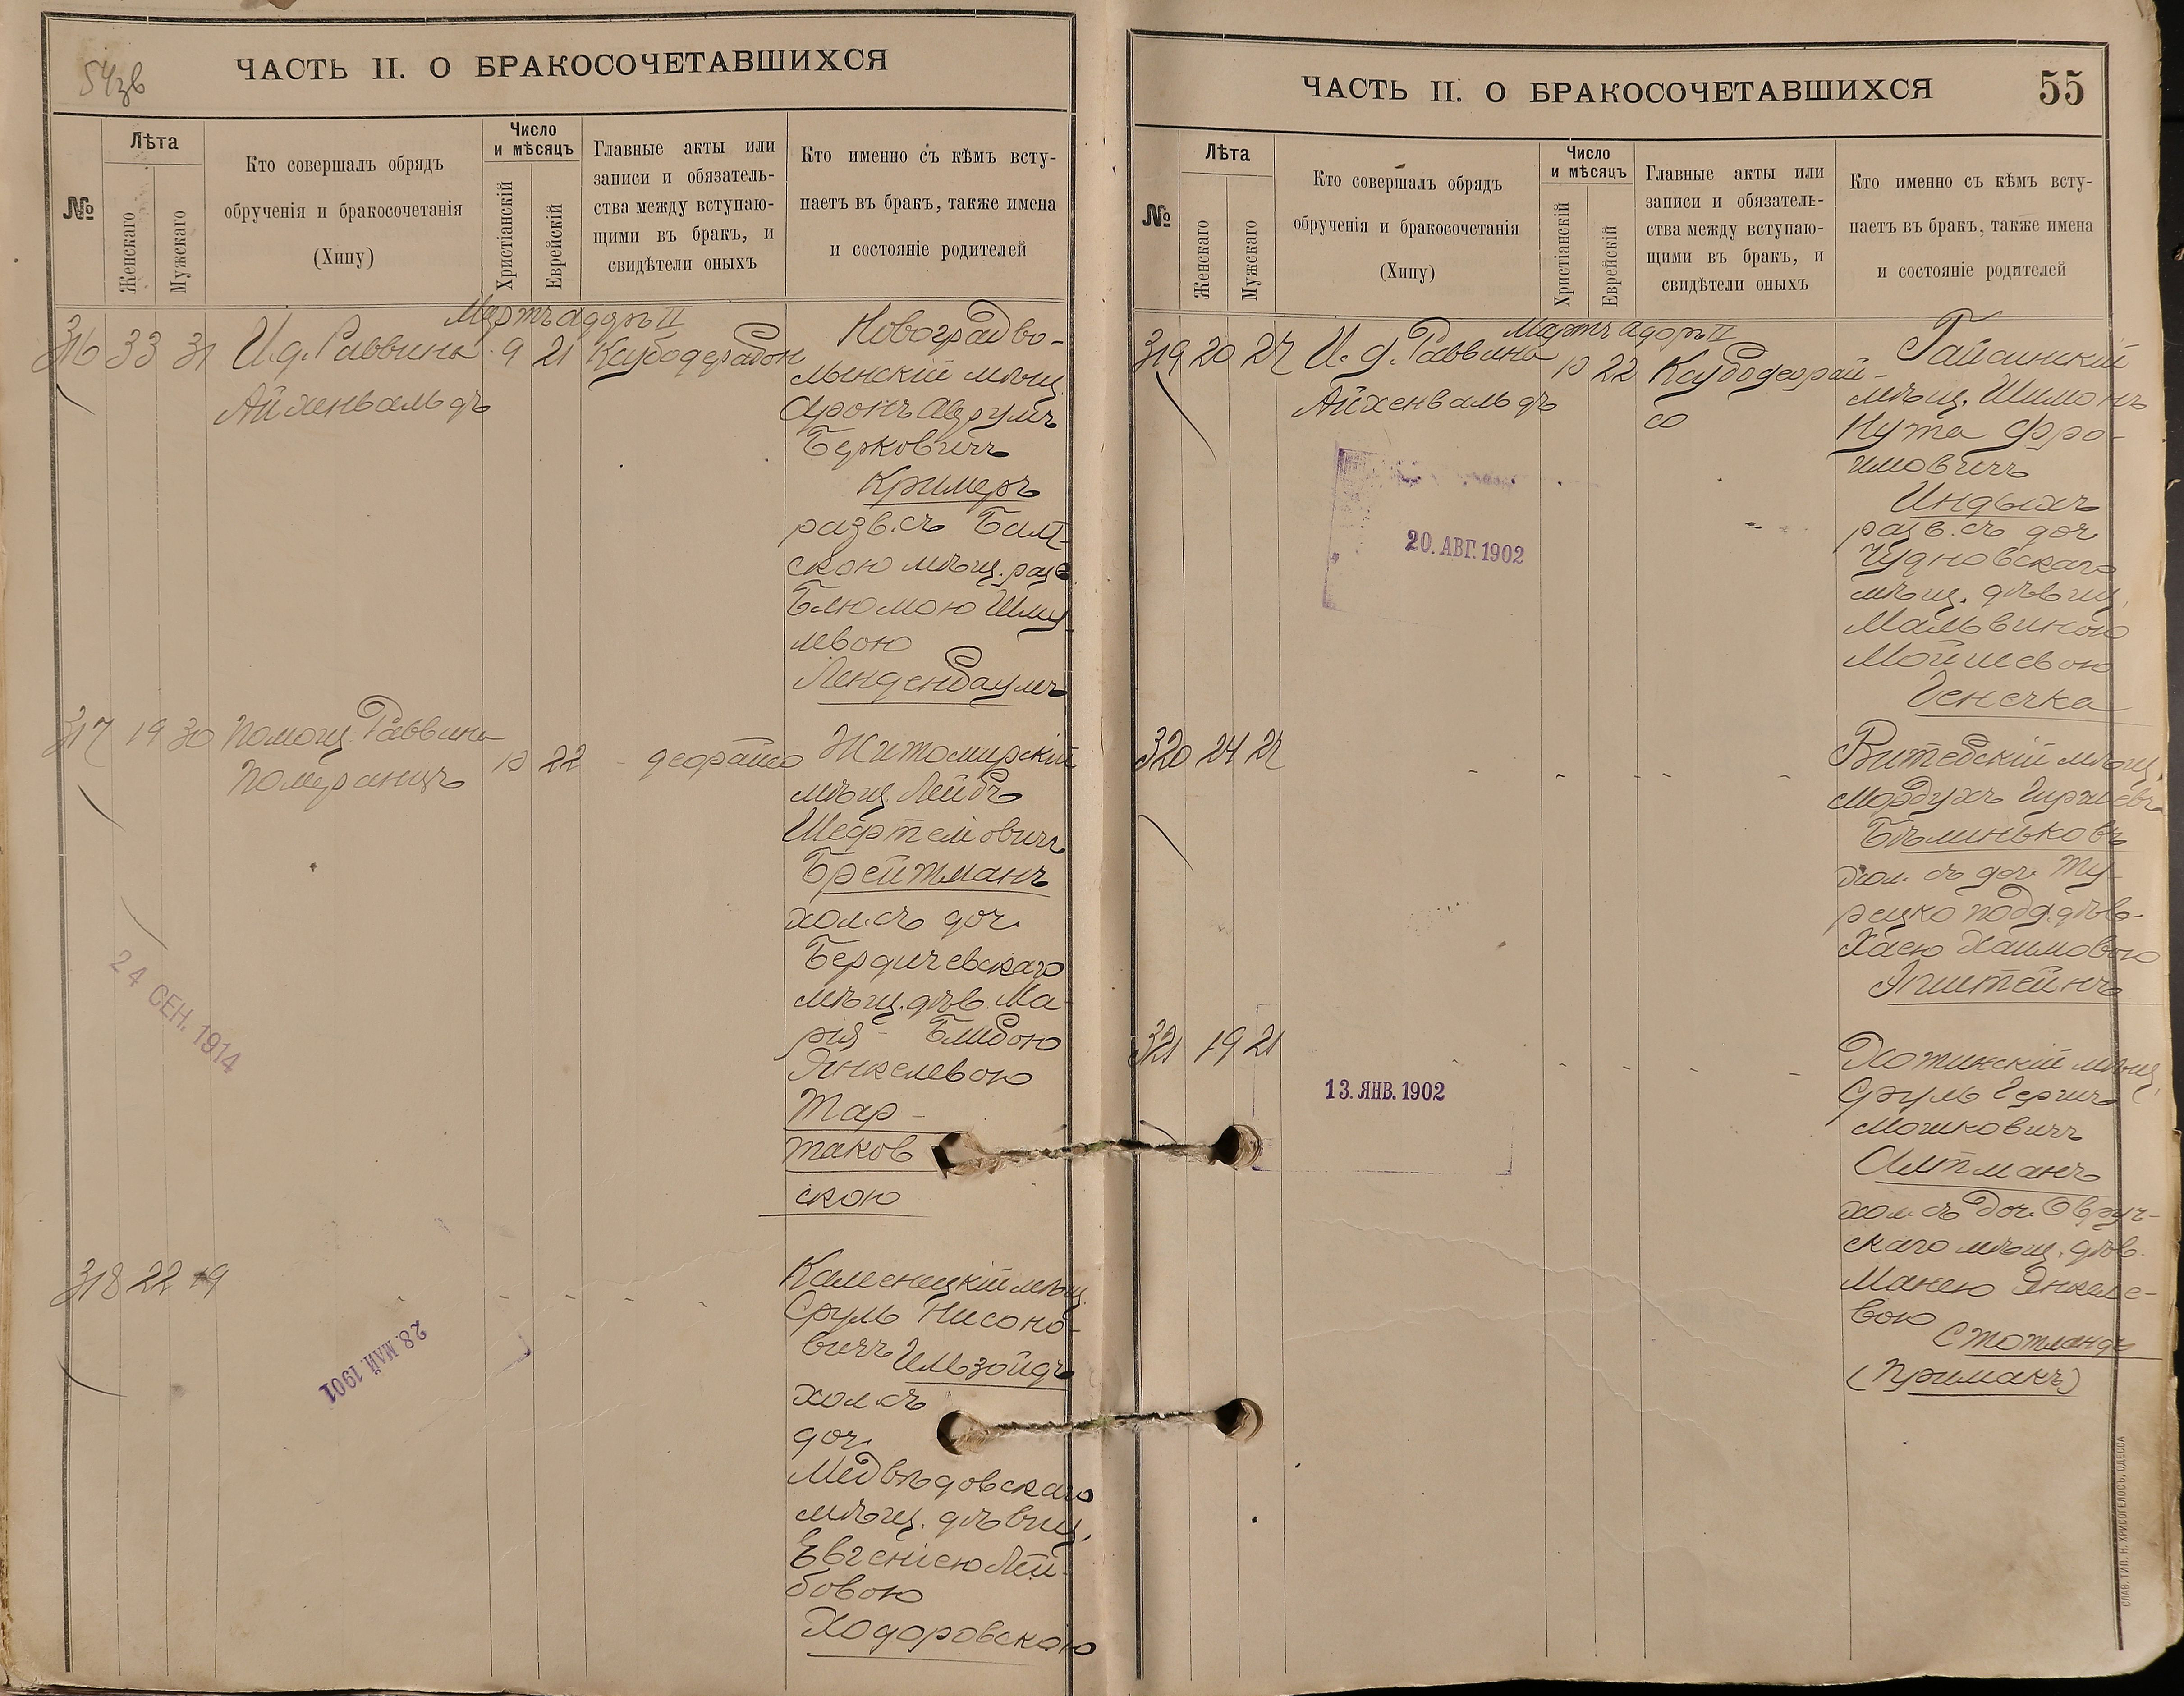 54зв
ЧАСТЬ II. О БРАКОСОЧЕТАВШИХСЯ
№
Лѣта
Женскаго
Мужскаго
Кто совершалъ обрядъ
обрученія и бракосочетанія
(Хипу)
Число
и мѣсяцъ
Христіанскій
Еврейскій
Главные акты или
записи и обязатель-
ства между вступаю-
щими въ бракъ, и
свидѣтели оныхъ
Кто именно съ кѣмъ всту-
паетъ въ бракъ, также имена
и состояніе родителей
Мартъ адаръ II
316 33 31 И.д. Раввина 9 21
Айхенвальдъ
Новоградво-
лынскій мѣщ.
Аронъ Аврумъ
Берковичъ
Кримеръ
разв. съ Балт-
скою мѣщ. разв.
Блюмою Шму-
левою
Ленденбаумъ
317 19 30 Помощ. Раввина 10 22 - деорайсо
Померанцъ
Житомирскій
мѣщ. Лейбъ
Шефтеловичъ
Брейтманъ
хол. съ доч.
Бердичевскаго
мѣщ. дѣв. Ма-
рія - Блибою
Янкелевою
Тар-
таков
скою
24 СЕН. 1914
318 22 19 - - - - -
Каменецкій мѣщ.
Сруль Нисоно-
вичъ Ильзойдъ
хол. съ
доч.
Медвѣдовскаго
мѣщ. дѣвиц.
Евгеніею Лей-
бовою
Ходоровскою
28. МАЙ. 1901
ЧАСТЬ II. О БРАКОСОЧЕТАВШИХСЯ
55
№
Лѣта
Женскаго
Мужскаго
Кто совершалъ обрядъ
обрученія и бракосочетанія
(Хипу)
Число
и мѣсяцъ
Христіанскій
Еврейскій
Главные акты или
записи и обязатель-
ства между вступаю-
щими въ бракъ, и
свидѣтели оныхъ
Кто именно съ кѣмъ всту-
паетъ въ бракъ, также имена
и состояніе родителей
Мартъ адаръ II
319 20 27 И.д. Раввина 10 22 Ксубодеорай-
Айхенвальдъ со
Гайсинскій
мѣщ. Шимонъ
Нута Фро-
имовичъ
Индыхъ
разв. съ доч.
Чудновскаго
мѣщ. дѣвиц.
Мальвиною
Мойшевою
Генечка
20. АВГ. 1902
320 24 27 - - - - -
Витебскій мѣщ.
Мордухъ Гиршевъ
Бѣлиньковъ
хол. съ доч. Ту-
рецко подд. дѣв.
Хаею Хаимовою
Эпштейнъ
321 19 21 - - - - -
Хотинскій мѣщ.
Сруль Гершъ
Мошковичъ
Алтманъ
хол. съ доч. Овруч-
скаго мѣщ. дѣв.
Манею Янкеле-
вою
Стотландъ
(Примакъ)
13. ЯНВ. 1902
СЛАВ. ТИП. Н. ХРИСОГЕЛОСЪ, ОДЕССА